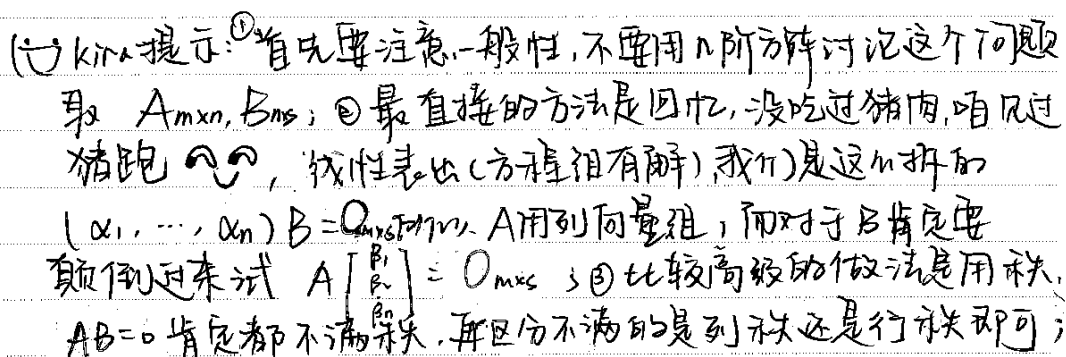 kira提示:①首先要注意一般性,不要用n阶方阵讨论这个问题
取 Am×n, Bn×s; ②最直接的方法是回忆,没吃过猪肉,咱见过
猪跑 , 线性表出(方程组有解),我们是这么拆的
(α₁, ⋯, αn) B = Om×s 所以 A用列向量组, 而对于B肯定要
颠倒过来试 A [β₁ β₂ βn] = Om×s ; ③比较高级的做法是用秩,
AB=0 肯定都不满秩,再区分不满的是列秩还是行秩即可;